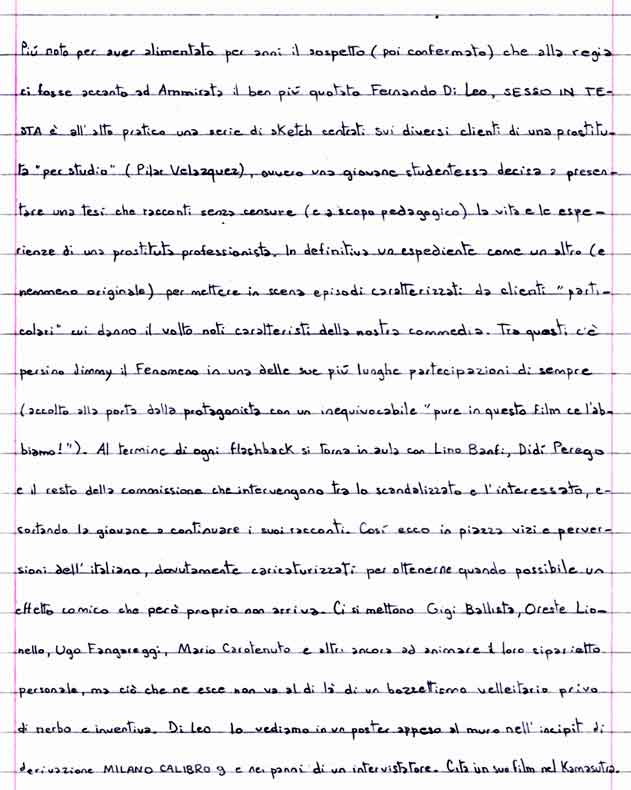 Piú noto per aver alimentato per anni il sospetto (poi confermato) che alla regia
ci fosse accanto ad Ammirata il ben piú quotato Fernando Di Leo, SESSO IN TE-
STA è all'atto pratico una serie di sketch centrati sui diversi clienti di una prostitu-
ta "per studio" (Pilar Velazquez), ovvero una giovane studentessa decisa a presen-
tare una tesi che racconti senza censure (e a scopo pedagogico) la vita e le espe-
rienze di una prostituta professionista. In definitiva un espediente come un altro (e
nemmeno originale) per mettere in scena episodi caratterizzati da clienti "parti-
colari" cui danno il volto noti caratteristi della nostra commedia. Tra questi c'è
persino Jimmy il Fenomeno in una delle sue piú lunghe partecipazioni di sempre
(accolto alla porta dalla protagonista con un inequivocabile "pure in questo film ce l'ab-
biamo!"). Al termine di ogni flashback si torna in aula con Lino Banfi, Didi Perego
e il resto della commissione che intervengono tra lo scandalizzato e l'interessato, e-
sortando la giovane a continuare i suoi racconti. Cosí ecco in piazza vizi e perver-
sioni dell'italiano, dovutamente caricaturizzati per ottenerne quando possibile un
effetto comico che però proprio non arriva. Ci si mettono Gigi Ballista, Oreste Lio-
nello, Ugo Fangareggi, Mario Carotenuto e altri ancora ad animare il loro siparietto
personale, ma ciò che ne esce non va al di là di un bozzettismo velleitario privo
di nerbo e inventiva. Di Leo lo vediamo in un poster appeso al muro nell'incipit di
derivazione MILANO CALIBRO 9 e nei panni di un intervistatore. Cita un suo film nel Kamasutra.